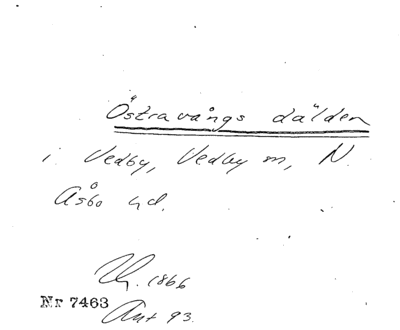 Östravångs dälden
i Vedby, Vedby m, N.
Åsbo hd.
1866
Nr 7463
Ant 93.